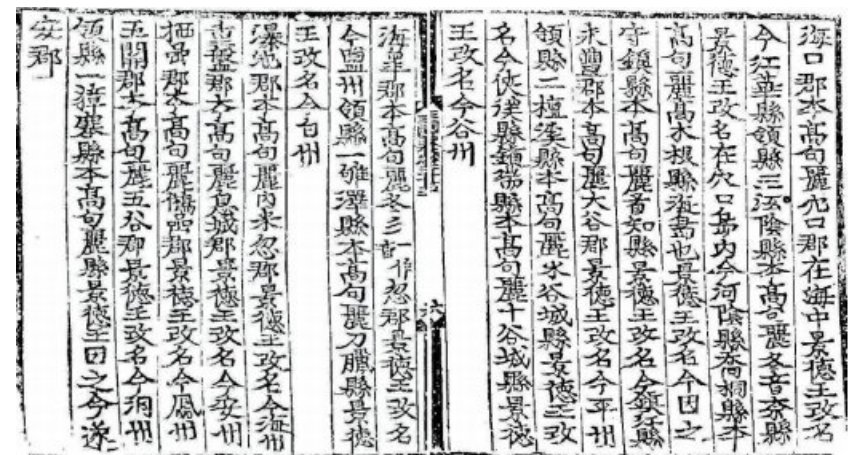 海口郡本高句麗穴口郡在海中景德王改名
今江華縣領縣三沍陰縣本高句麗冬音奈縣
景德王改名在穴口島內今河陰縣喬桐縣本
高句麗高木根縣海島也景德王改名今因之
守鎮縣本高句麗首知縣景德王改名今鎮江縣
永豐郡本高句麗大谷郡景德王改名今平州
領縣二檀溪縣本高句麗水谷城縣景德王改
名今俠溪縣鎮瑞縣本高句麗十谷城縣景德
王改名今谷州
六
海皐郡本高句麗冬彡一作音忽郡景德王改名
今鹽州領縣一雊澤縣本高句麗刀臘縣景德
王改名今白州
瀑池郡本高句麗內米忽郡景德王改名今海州
重盤郡本高句麗息城郡景德王改名今安州
栖嵒郡本高句麗鵂嵒郡景德王改名今鳳州
五關郡本高句麗五谷郡景德王改名今洞州
領縣一獐塞縣本高句麗縣景德王因之今遂
安郡